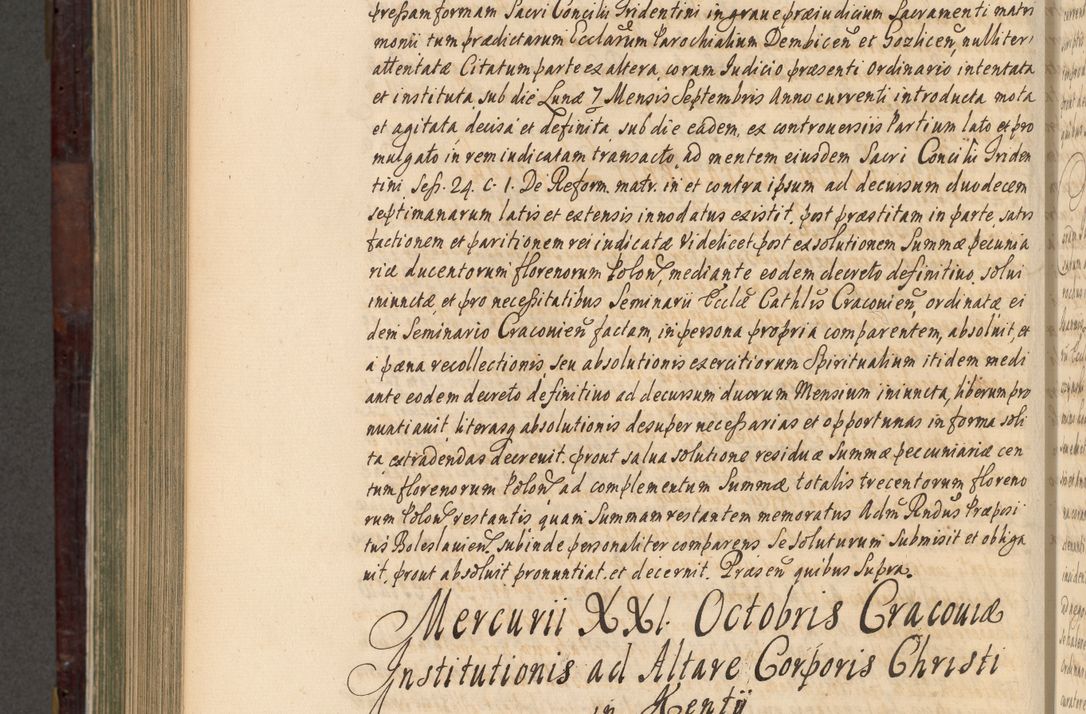 pressam formam Sacri Concilii Tridentini in graue præiudicium Sacramenti matri
monii tum prædictarum Ecclarum Parochialium Dembicen̄ et Gozlicen̄, nulliter
attentatæ Citatum parte ex altera, coram Iudicio præsenti Ordinario intentata
et instituta, sub die Lunæ 7 Mensis Septembris Anno currenti introducta mota
et agitata decisa et definita sub die eadem, ex controuersiis Partium lato et pro
mulgato in rem iudicatam transacto, ad mentem eiusdem Sacri Concilii Triden
tini Sess. 24. c. 1. De Reform. matr. in et contra ipsum ad decursum duodecem
septimanarum latis et extensis innodatus existit, post præstitam in parte, satis
factionem et paritionem rei iudicatæ Videlicet post exsolutionem Summæ pecunia
riæ ducentorum florenorum Polon̄, mediante eodem decreto definitiuo solui
iniunctæ, et pro necessitatibus Seminarii Ecclæ Cathlis Cracouien̄, ordinatæ, ei
dem Seminario Cracouien̄ factam, in persona propria comparentem, absoluit, et
a pœna recollectionis, seu absolutionis exercitiorum Spiritualium itidem medi
ante eodem decreto definitiuo ad decursum duorum Mensium iniuncta, liberum pro
nuntiauit, literasq absolutionis desuper necessarias et opportunas in forma soli
ta extradendas decreuit. prout salua solutione residuæ Summæ peccuniariæ cen
tum florenorum Polon̄, ad complementum Summæ totalis trecentorum floreno
rum Polon̄, restantis, quam Summam restantem memoratus Adm̄ Rndus Præposi
tus Boleslauien̄, subinde personaliter comparens se soluturum submisit et obliga
uit, prout absoluit pronuntiat, et decernit. Præsen̄ quibus Supra.
Mercurii XXI. Octobris Cracouiæ
Institutionis ad Altare Corporis Christi
in Kentij